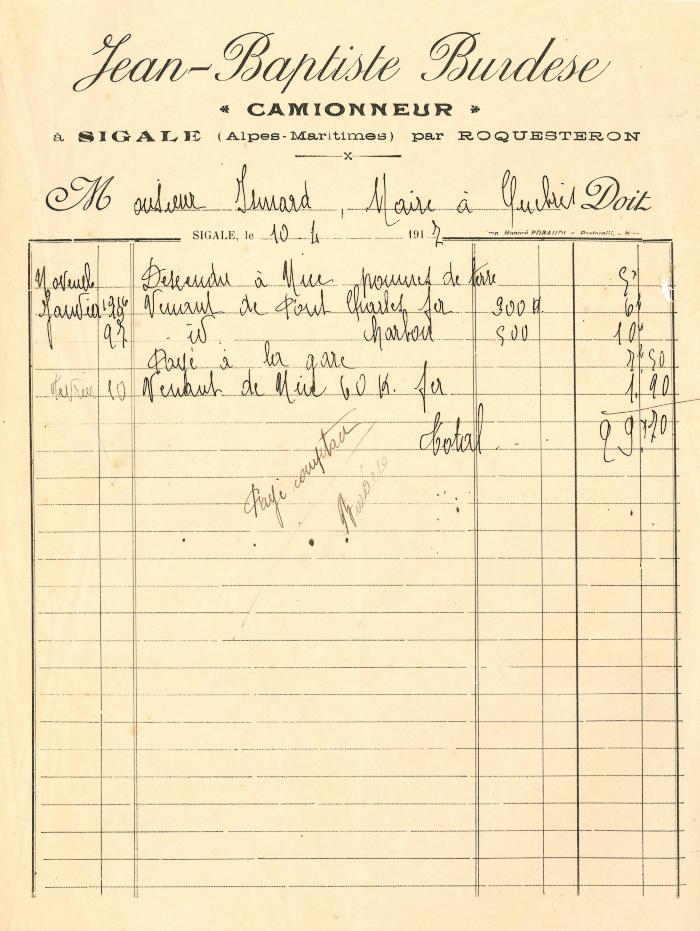 Jean-Baptiste Burdese
* CAMIONNEUR *
à SIGALE (Alpes-Maritimes) par ROQUESTERON
Monsieur Isnard, Maire à Cuebris Doit
SIGALE, le 10 4 1917
Imp. Honoré ROBAUDI
Novemb Descendu à Nice pommes de terre 5"
Janvier Venant de Pont Charles fer 300 K 6"
27 id charbon 500 10"
Payé à la gare 50
Fevrier 10 Venant de Nice 60 K. fer 1.90
Total 29 70
Payé comptan
Burdese